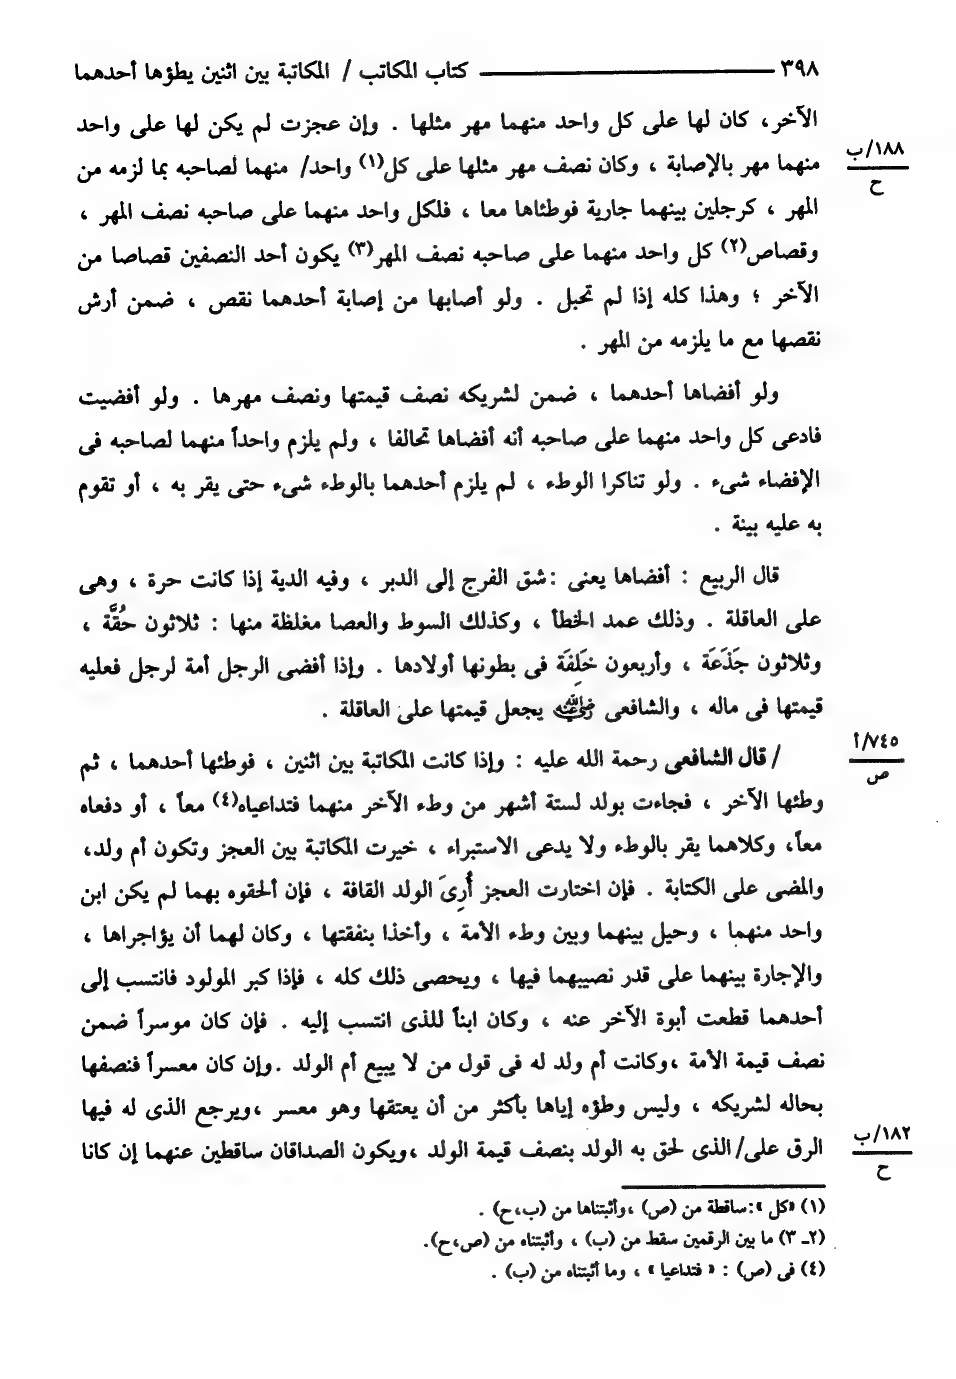 ٣٩٨ ــــــــــــــــــــــــ كتاب المكاتب / المكاتبة بين اثنين يطؤها أحدهما
الآخر، كان لها على كل واحد منهما مهر مثلها . وإن عجزت لم يكن لها على واحد
١٨٨/ب
ح
منهما مهر بالإصابة ، وكان نصف مهر مثلها على كل(١) واحد/ منهما لصاحبه بما لزمه من
المهر ، كرجلين بينهما جارية فوطئاها معا ، فلكل واحد منهما على صاحبه نصف المهر ،
وقصاص(٢) كل واحد منهما على صاحبه نصف المهر(٣) يكون أحد النصفين قصاصا من
الآخر ؛ وهذا كله إذا لم تحبل . ولو أصابها من إصابة أحدهما نقص ، ضمن أرش
نقصها مع ما يلزمه من المهر .
ولو أفضاها أحدهما ، ضمن لشريكه نصف قيمتها ونصف مهرها . ولو أفضيت
فادعى كل واحد منهما على صاحبه أنه أفضاها تحالفا ، ولم يلزم واحداً منهما لصاحبه فى
الإفضاء شىء . ولو تناكرا الوطء ، لم يلزم أحدهما بالوطء شىء حتى يقر به ، أو تقوم
به عليه بينة .
قال الربيع : أفضاها يعنى :شق الفرج إلى الدبر ، وفيه الدية إذا كانت حرة ، وهى
على العاقلة . وذلك عمد الخطأ ، وكذلك السوط والعصا مغلظة منها : ثلاثون حُقَّة ،
وثلاثون جَذَعَة ، وأربعون خَلِفَة فى بطونها أولادها . وإذا أفضى الرجل أمة لرجل فعليه
قيمتها فى ماله ، والشافعى رضي الله عنه يجعل قيمتها على العاقلة .
٧٤٥/أ
ص
/ قال الشافعى رحمة الله عليه : وإذا كانت المكاتبة بين اثنين ، فوطئها أحدهما ، ثم
وطئها الآخر ، فجاءت بولد لستة أشهر من وطء الآخر منهما فتداعياه(٤) معاً ، أو دفعاه
معاً، وكلاهما يقر بالوطء ولا يدعى الاستبراء ، خيرت المكاتبة بين العجز وتكون أم ولد،
والمضى على الكتابة . فإن اختارت العجز أُرِىَ الولد القافة ، فإن ألحقوه بهما لم يكن ابن
واحد منهما ، وحيل بينهما وبين وطء الأمة ، وأخذا بنفقتها ، وكان لهما أن يؤاجراها ،
والإجارة بينهما على قدر نصيبهما فيها ، ويحصى ذلك كله ، فإذا كبر المولود فانتسب إلى
أحدهما قطعت أبوة الآخر عنه ، وكان ابناً للذى انتسب إليه . فإن كان موسراً ضمن
نصف قيمة الأمة ،وكانت أم ولد له فى قول من لا يبيع أم الولد .وإن كان معسراً فنصفها
بحاله لشريكه ، وليس وطؤه إياها بأكثر من أن يعتقها وهو معسر ،ويرجع الذى له فيها
١٨٢/ب
ح
الرق على/ الذى لحق به الولد بنصف قيمة الولد ،ويكون الصداقان ساقطين عنهما إن كانا
(١) «كل »:ساقطة من (ص) ،وأثبتناها من (ب،ح) .
(٢ـ ٣) ما بين الرقمين سقط من (ب) ، وأثبتناه من (ص،ح).
(٤) فى (ص) : « فتداعيا » ، وما أثبتناه من (ب) .